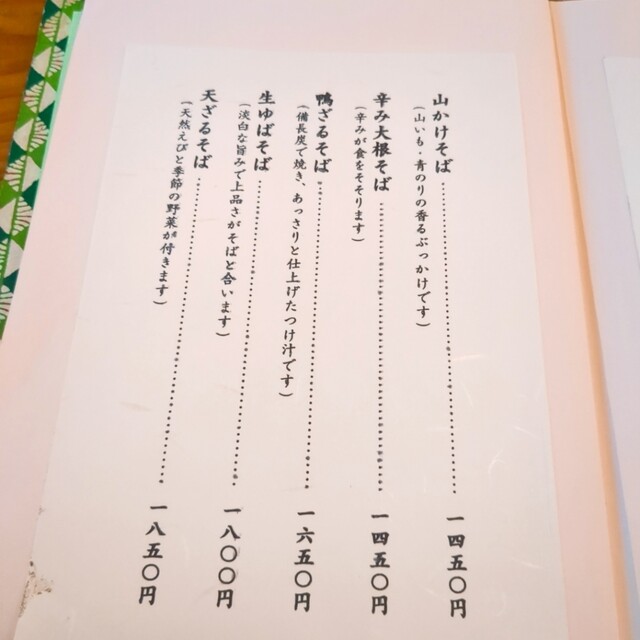 山かけそば 一四五〇円
(山いも・青のりの香るぶっかけです)
辛み大根そば 一四五〇円
(辛みが食をそそります)
鴨ざるそば 一六五〇円
(備長炭で焼き、あっさりと仕上げたつけ汁です)
生ゆばそば 一八〇〇円
(淡白な旨みで上品さがそばと合います)
天ざるそば 一八五〇円
(天然えびと季節の野菜が付きます)